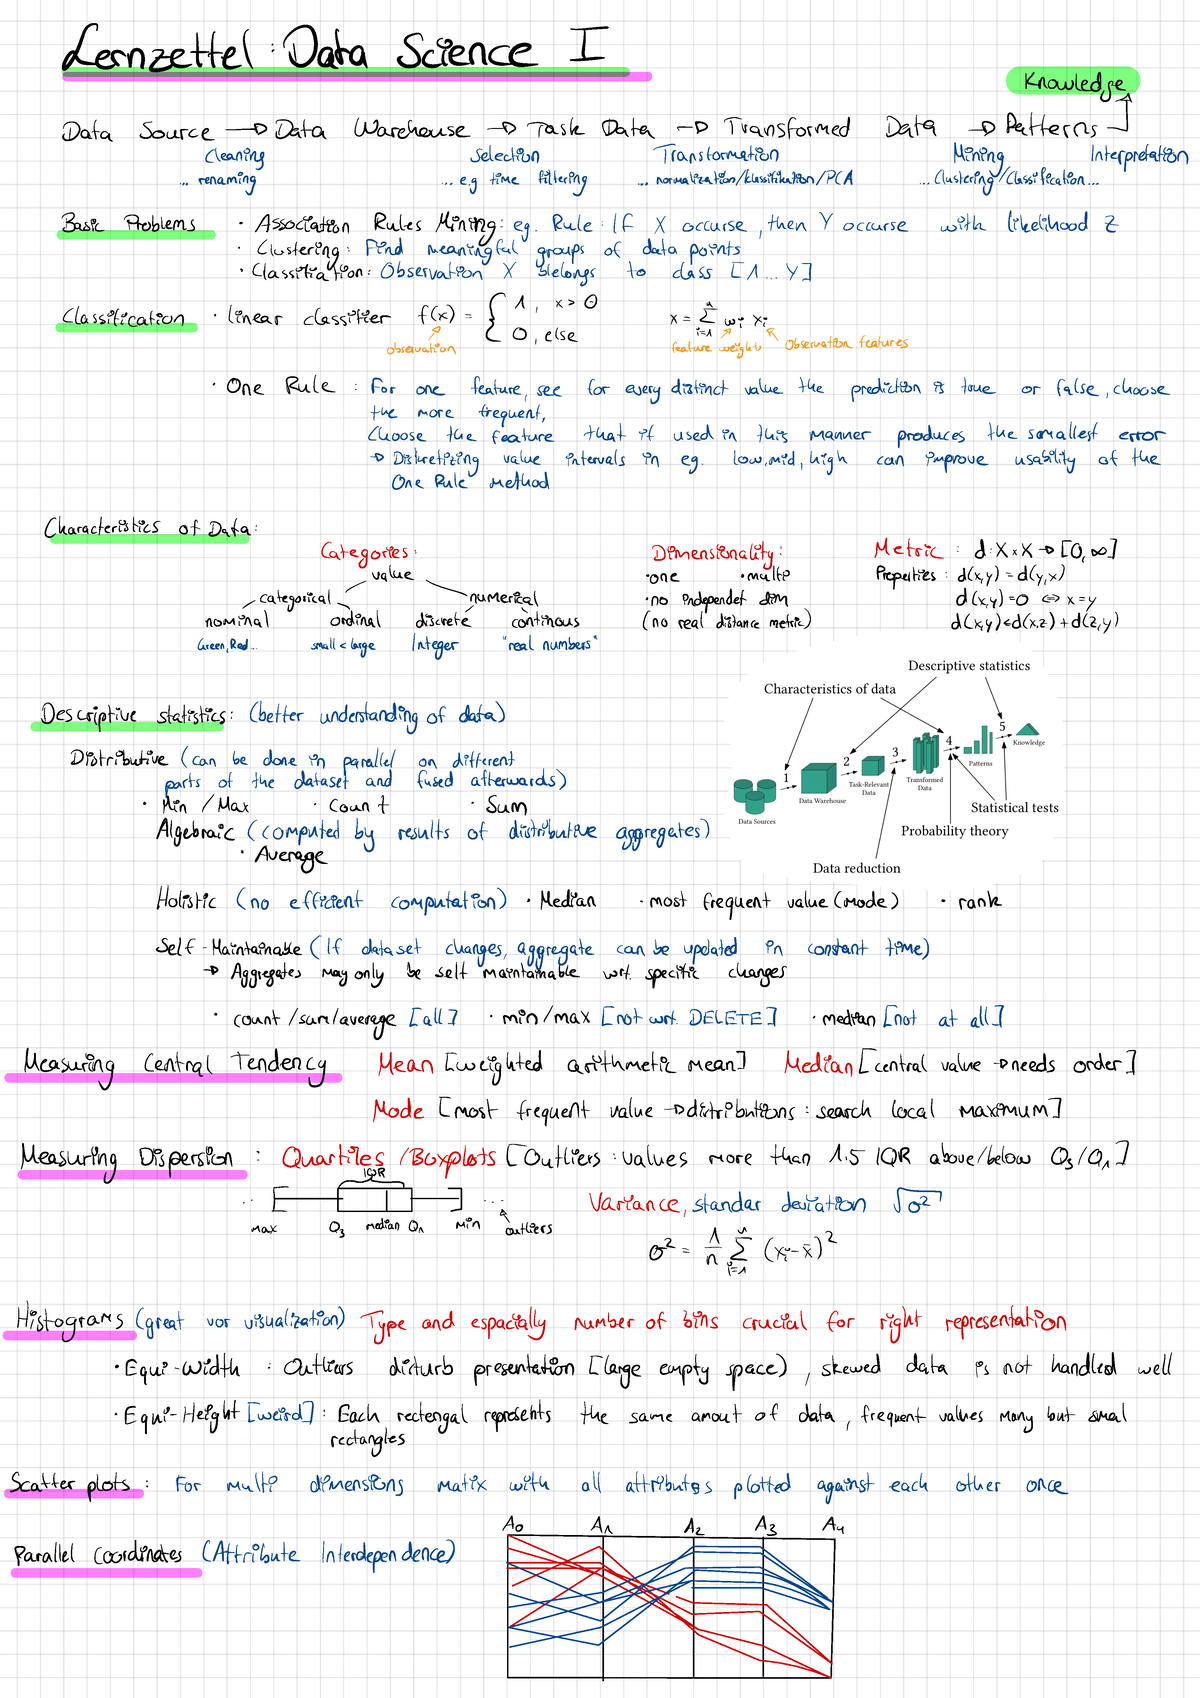 Lernzettel: Data Science I
Knowledge
Data Source → Data Warehouse → Task Data → Transformed Data → Patterns
Cleaning Selection Transformation Mining Interpretation
... renaming ... e.g time filtering ... normalization/klassifikation/PCA ... Clustering/Classification...
Basic Problems · Association Rules Mining: eg. Rule: If X occurse, then Y occurse with likelihood Z
· Clustering: Find meaningful groups of data points
· Classifiation: Observation X belongs to class [1...Y]
Classification · linear classifier f(x) = { 1, x > 0
0, else
x = Σ wi xi
n
i=1
observation feature weights Observation features
· One Rule : For one feature, see for every distinct value the prediction is true or false, choose
the more frequent,
Choose the feature that if used in this manner produces the smallest error
→ Diskretizing value intervals in eg. low, mid, high can improve usability of the
One Rule method
Characteristics of Data:
Categories: Dimensionality: Metric : d: X x X → [0, ∞]
value ·one ·multi Properties: d(x,y) = d(y,x)
categorical numerical ·no independet dim d(x,y)=0 ⇔ x=y
nominal ordinal discrete continous (no real distance metric) d(x,y)<d(x,z)+d(z,y)
Green, Red... small < large Integer "real numbers"
Descriptive statistics
Characteristics of data
Descriptive statistics: (better understanding of data)
1 2 3 4 5
Data Sources Data Warehouse Task-Relevant Data Transformed Data Patterns Knowledge
Statistical tests
Probability theory
Data reduction
Distributive (can be done in parallel on different
parts of the dataset and fused afterwards)
· Min / Max · Count · Sum
Algebraic (computed by results of distributive aggregates)
· Average
Holistic (no efficient computation) · Median · most frequent value (mode) · rank
Self-Maintainable (If dataset changes, aggregate can be updated in constant time)
→ Aggregates may only be self maintainable wrt. specific changes
· count/sum/average [all] · min/max [not wrt. DELETE] · median [not at all]
Measuring Central Tendency Mean [weighted arithmetic mean] Median [central value → needs order]
Mode [most frequent value → distributions: search local maximum]
Measuring Dispersion : Quartiles /Boxplots [Outliers: values more than 1.5 IQR above/below Q3/Q1]
IQR
.. ...
Max Q3 median Q1 Min outliers
Variance, standar deviation √σ²
σ² = 1/n Σ (xi-x̄)²
n
i=1
Histograms (great vor visualization) Type and espacially number of bins crucial for right representation
· Equi-Width : Outliers disturb presentation [large empty space), skewed data is not handled well
· Equi-Height [weird]: Each rectengal represents the same amout of data, frequent values many but smal
rectangles
Scatter plots : For multi dimensions matix with all attributes plotted against each other once
A0 A1 A2 A3 A4
Parallel Coordinates (Attribute Interdependence)